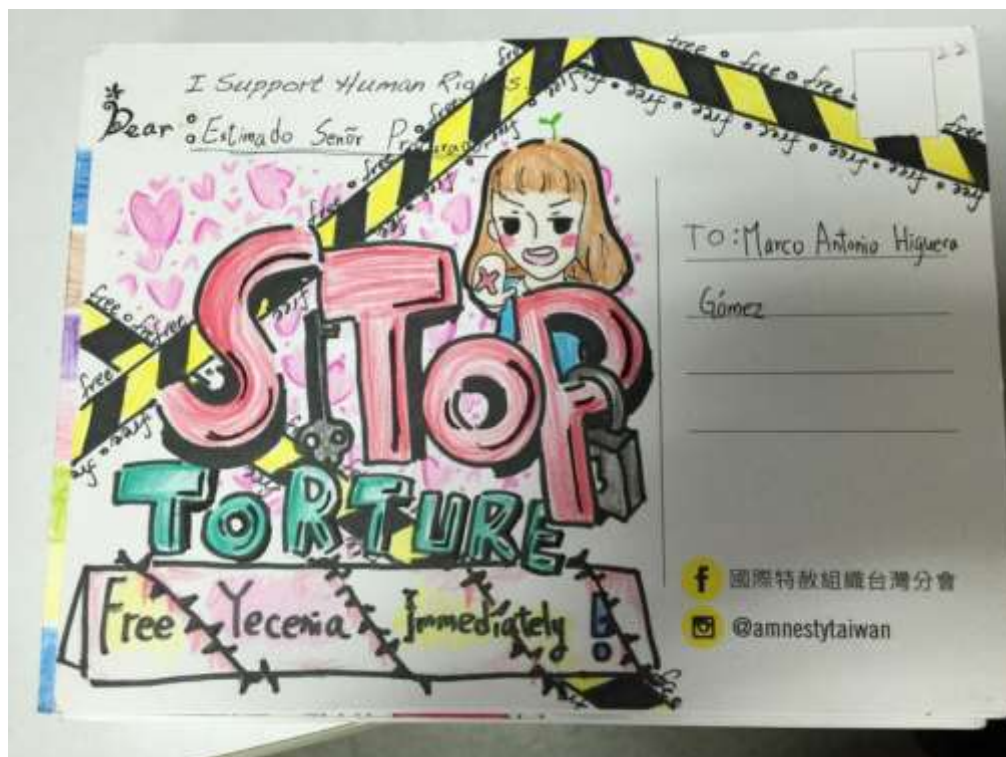 I Support Human Rights.
Dear: Estimado Senõr Procurador
free free free free
STOP
TORTURE
Free Yecenia Immediately!
22
TO: Marco Antonio Higuera
Gómez
國際特赦組織台灣分會
@amnestytaiwan